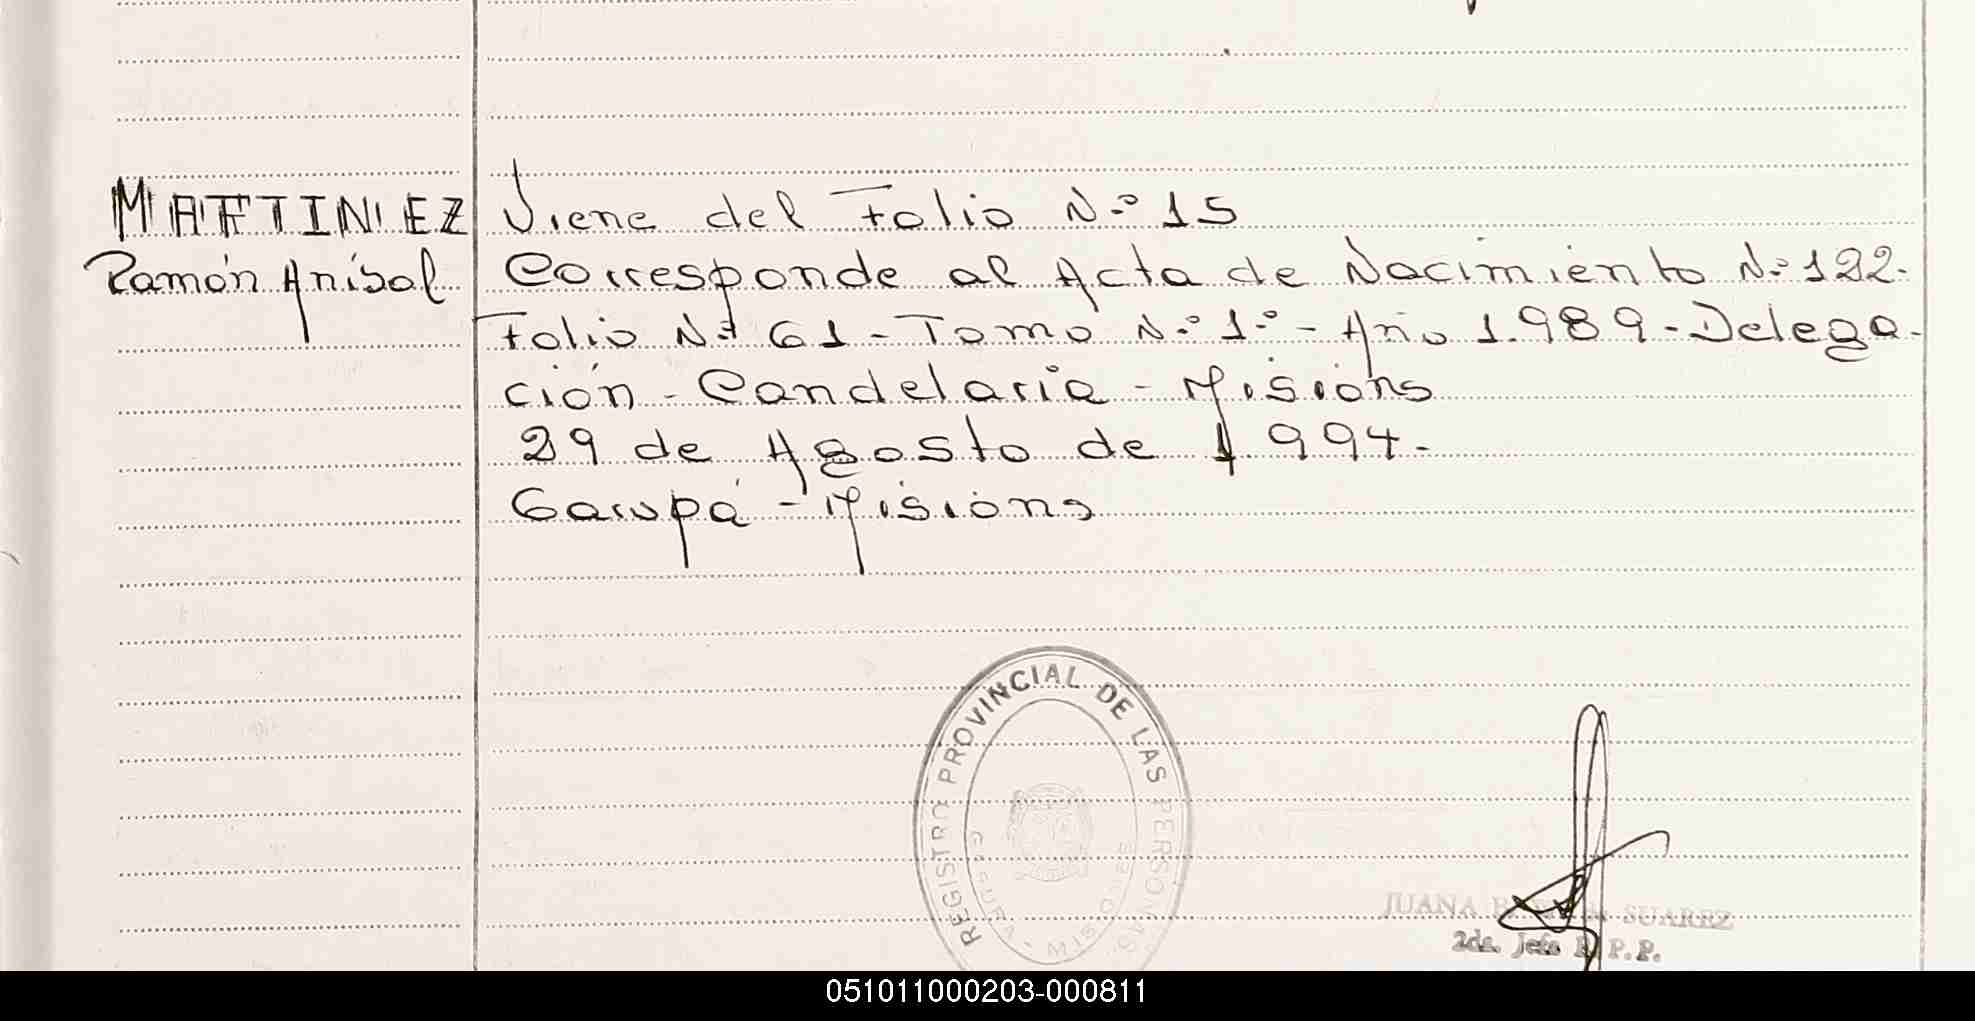 MARTINEZ
Ramón Aníbal
Viene del Folio N.º 15
Corresponde al Acta de Nacimiento N.º 122.
Folio N.º 61 - Tomo N.º 1º - Año 1.989 - Delega-
ción - Candelaria - Misions
29 de Agosto de 1994.
Garupá - Misions
REGISTRO PROVINCIAL DE LAS PERSONAS
MISIONES
JUANA SUAREZ
2da. Jefa R.P.P.
051011000203-000811